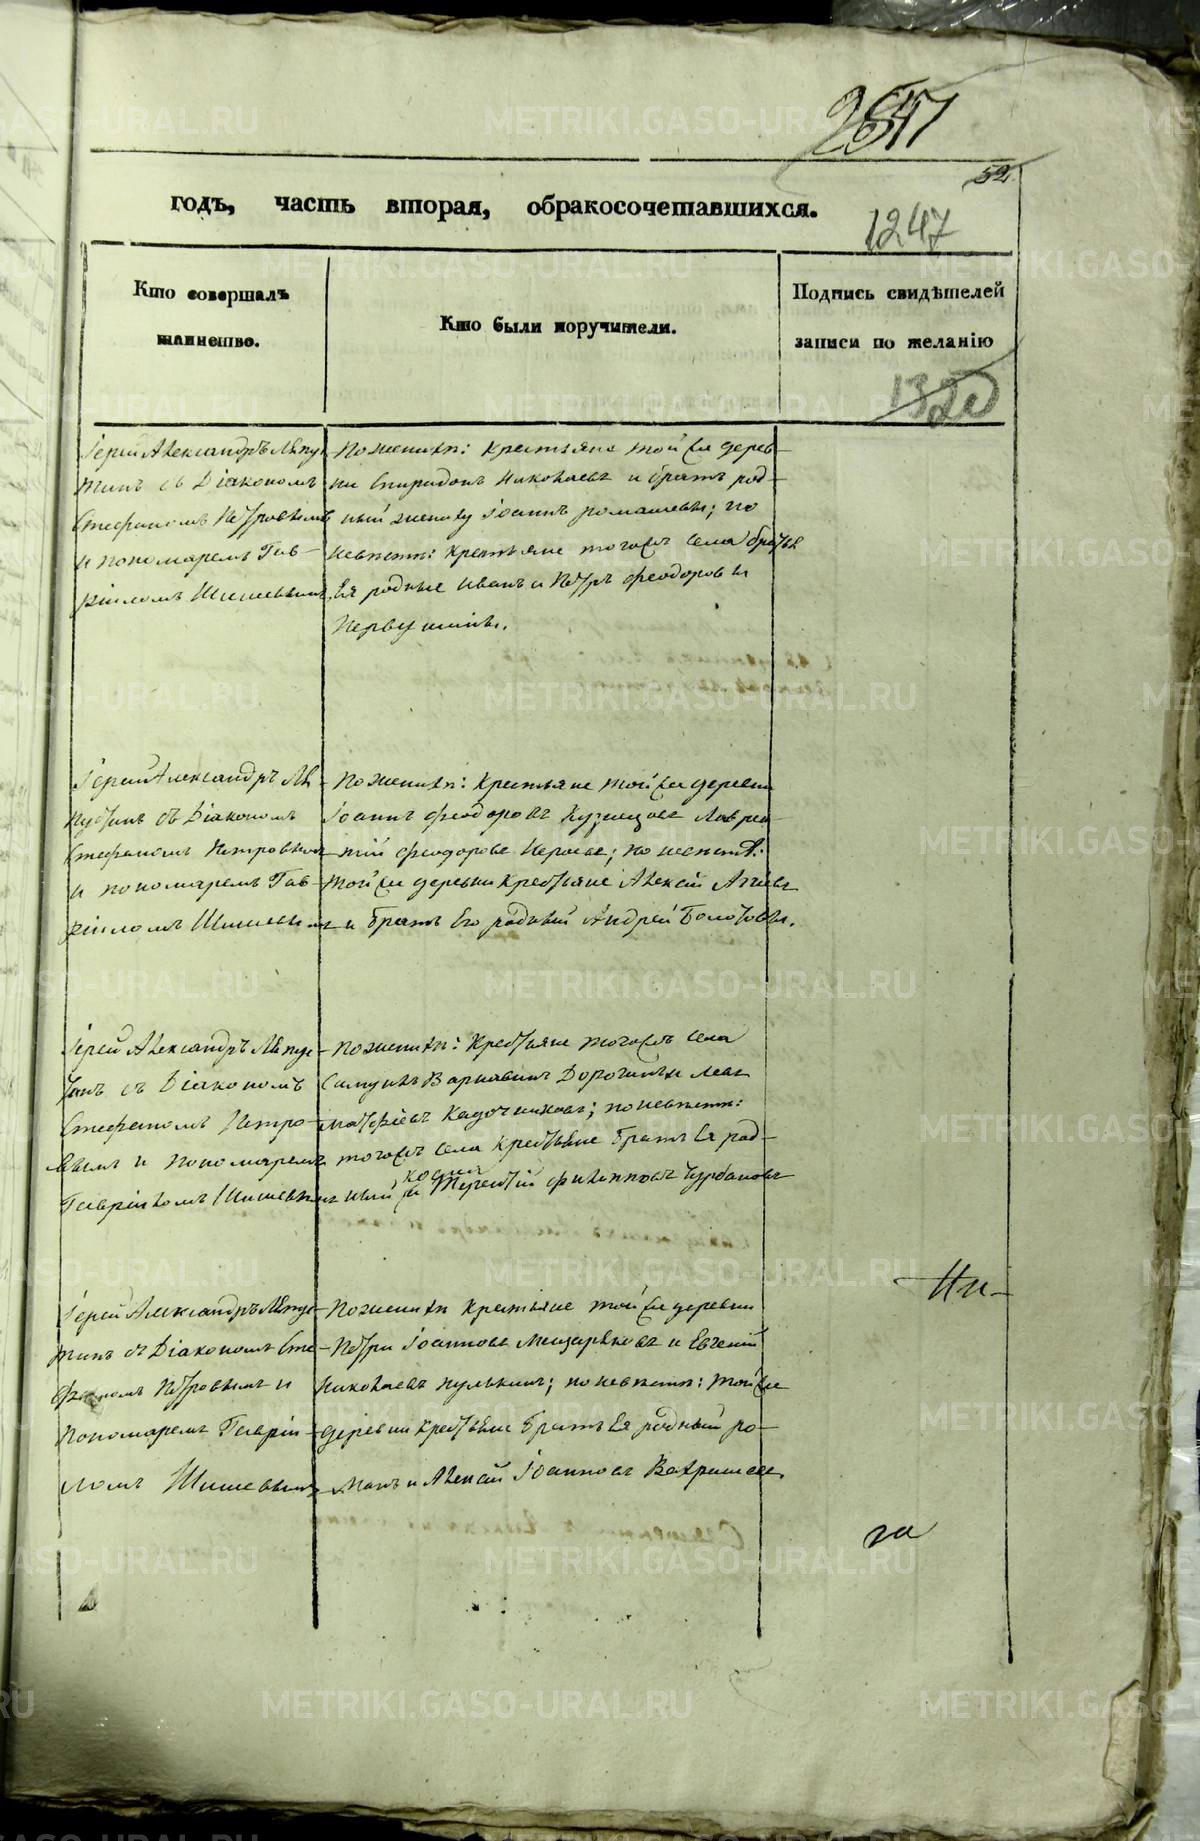 2647
52
годъ, часть вторая, обракосочетавшихся.
1247
Кто совершалъ
таинство.
Кто были поручители.
Подпись свидѣтелей
записи по желанію
Іерей Александръ Ляпу-
тинъ съ Діакономъ
Стефаномъ Петровымъ
и пономаремъ Гав-
ріиломъ Шишевымъ
По женихѣ: крестьяне той же дерев-
ни Спиридонъ Николаевъ и братъ род-
ный жениху Іоаннъ Ромашевы; по
невѣстѣ: крестьяне тогожъ села братья
Ея родные Иванъ и Петръ Феодоровы
Первушины.
Іерей Александръ Ля-
путинъ съ Діакономъ
Стефаномъ Петровымъ
и пономаремъ Гав-
ріиломъ Шишевымъ
По женихѣ: крестьяне той же деревни
Іоаннъ Феодоровъ Кузнецовъ Лаврен-
тій Феодоровъ; по невѣстѣ:
той же деревни крестьяне Алексей
и братъ Его родный Андрей Болотовы.
Іерей Александръ Ляпу-
тинъ съ Діакономъ
Стефаномъ Петро-
вымъ и пономаремъ
Гавріиломъ Шишевымъ
По женихѣ: крестьяне тогожъ села
Самуилъ Варнавинъ Дорогинъ и Левъ
Матфіевъ Кадочниковъ; по невѣстѣ:
тогожъ села крестьяне братъ Ея род-
ный и Терентій Филипповъ Чурбановъ
Іерей Александръ Ляпу-
тинъ съ Діакономъ Сте-
фаномъ Петровымъ и
пономаремъ Гавріи-
ломъ Шишевымъ
По женихѣ крестьяне той же деревни
Петръ Іоанновъ Мещаряковъ и Евгений
Николаевъ Пулькинъ; по невѣстѣ: той же
деревни крестьяне братъ Ея родный Ро-
манъ и Алексей Іоанновъ Вахрашевы
METRIKI.GASO-URAL.RU